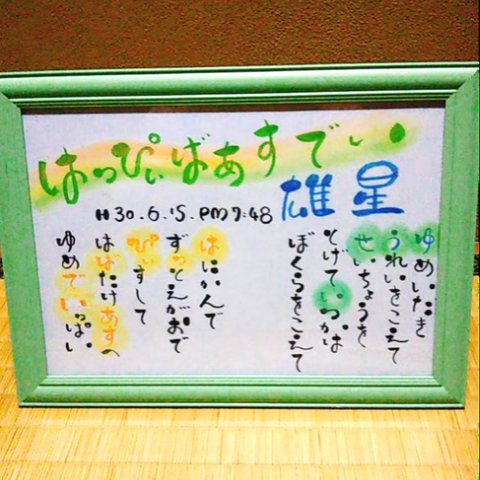 はっぴぃばあすでい
雄星
H30.6.15. PM7:48
ゆめいだき
うれいをこえて
せいちょうを
とげていつかは
ぼくらをこえて
はにかんで
ずっとえがおで
ぴぃすして
はばたけあすへ
ゆめでいっぱい